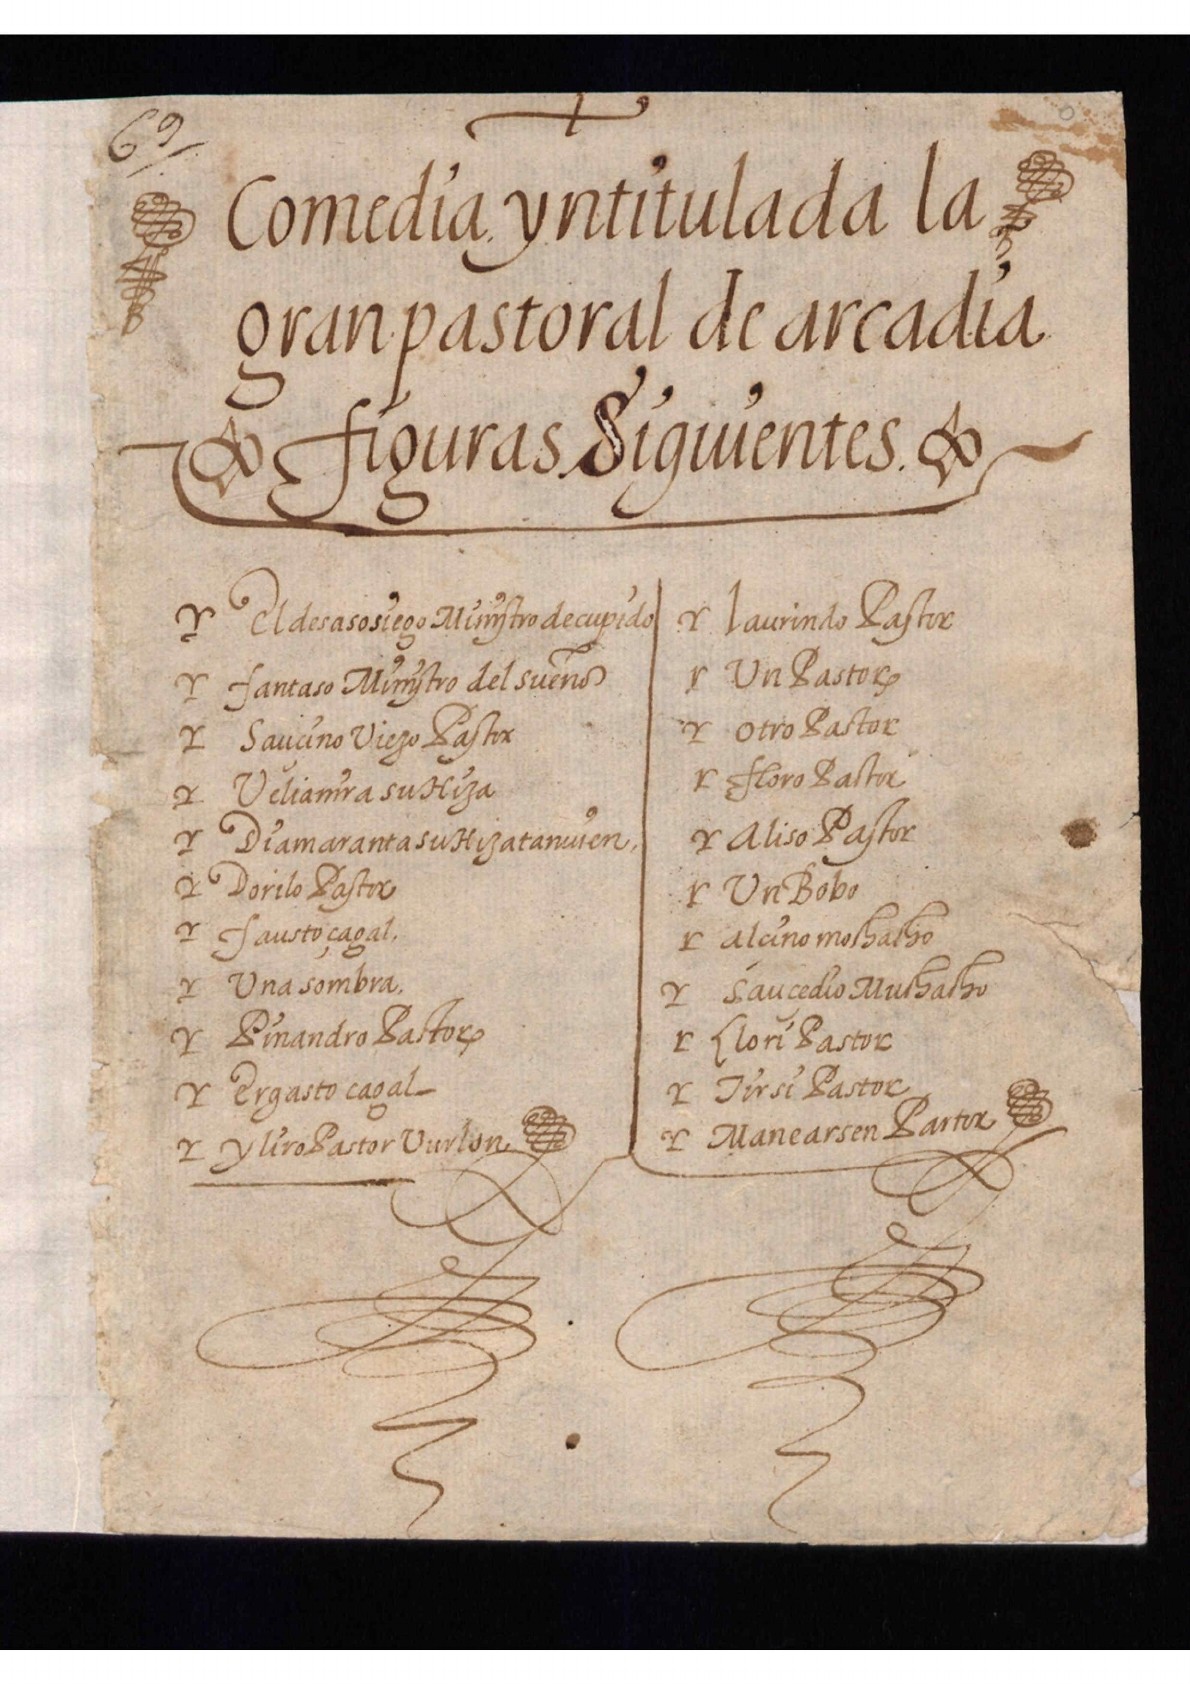 69/
Comedia yntitulada la
gran pastoral de arcadia
figuras Siguientes.
El desasosiego Ministro de cupido
fantaso Ministro del sueño
Saucino Viejo Pastor
Veliamira su Hija
Diamaranta su Hija tanvien,
Dorilo Pastor
fausto çagal.
Una sombra.
Pinandro Pastor
Ergasto çagal
yliro Pastor Vurlon
laurindo Pastor
Un Pastor
otro Pastor
floro Pastor
Aliso Pastor
Un Bobo
alcino mochacho
Saucedio Muchacho
Llori Pastor
Tirsi Pastor
Manearsen Partor